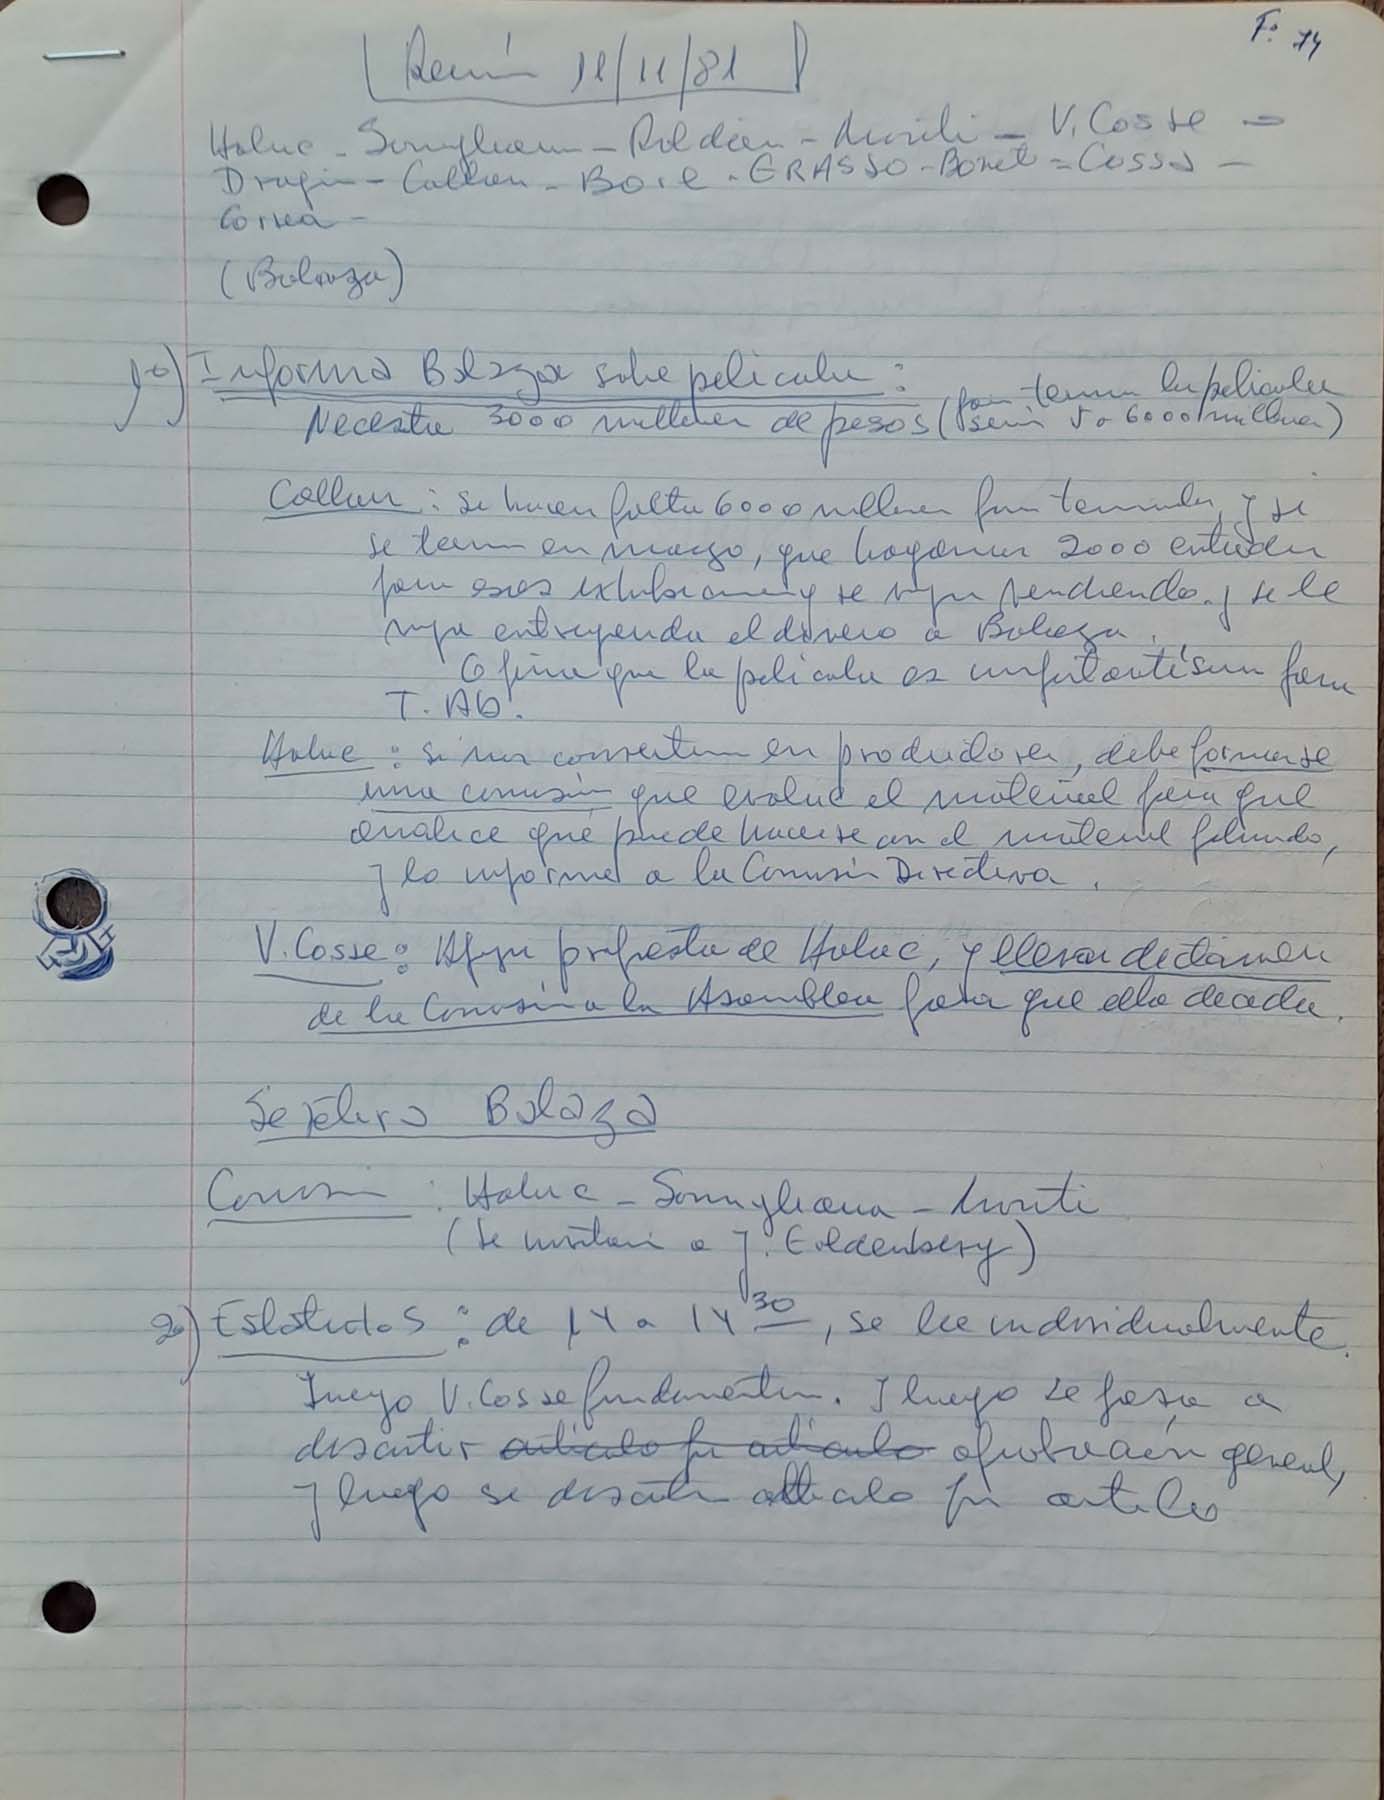 F: 74
Reunión 11/11/81
Haluc - Somigliana - Roldán - Monti - V. Cosse -
Dragún - Callau - Bove - GRASSO - Bonet - Cossa -
Gorná -
(Balaza)
1º) Informa Balaza sobre película:
Necesita 3000 millones de pesos (para termin la película
será 5 o 6000 millones)
Callau: Si hacen falta 6000 millones para terminarla, y si
se term en marzo, que hagamos 2000 entradas
para esas exhibiciones y se vaya vendiendo. y se le
vaya entregando el dinero a Balaza.
Opina que la película es importantísima para
T. Ab.
Haluc: Si nos convertim en productores, debe formarse
una comisión que evalue el material para que
analice qué puede hacerse con el material filmado,
y lo informe a la Comisión Directiva.
V. Cosse: Apoya propuesta de Haluc, y llevar dictamen
de la Comisión a la Asamblea para que ella decida.
Se retira Balaza
Comisión: Haluc - Somigliana - Monti
(Se invitará a J. Goldenberg)
2º) Estatutos: de 14 a 14 30, se lee individualmente.
Luego V. Cosse fundamenta. Y luego se pasa a
discutir artículo por artículo aprobación general,
y luego se discute artículo por artículo